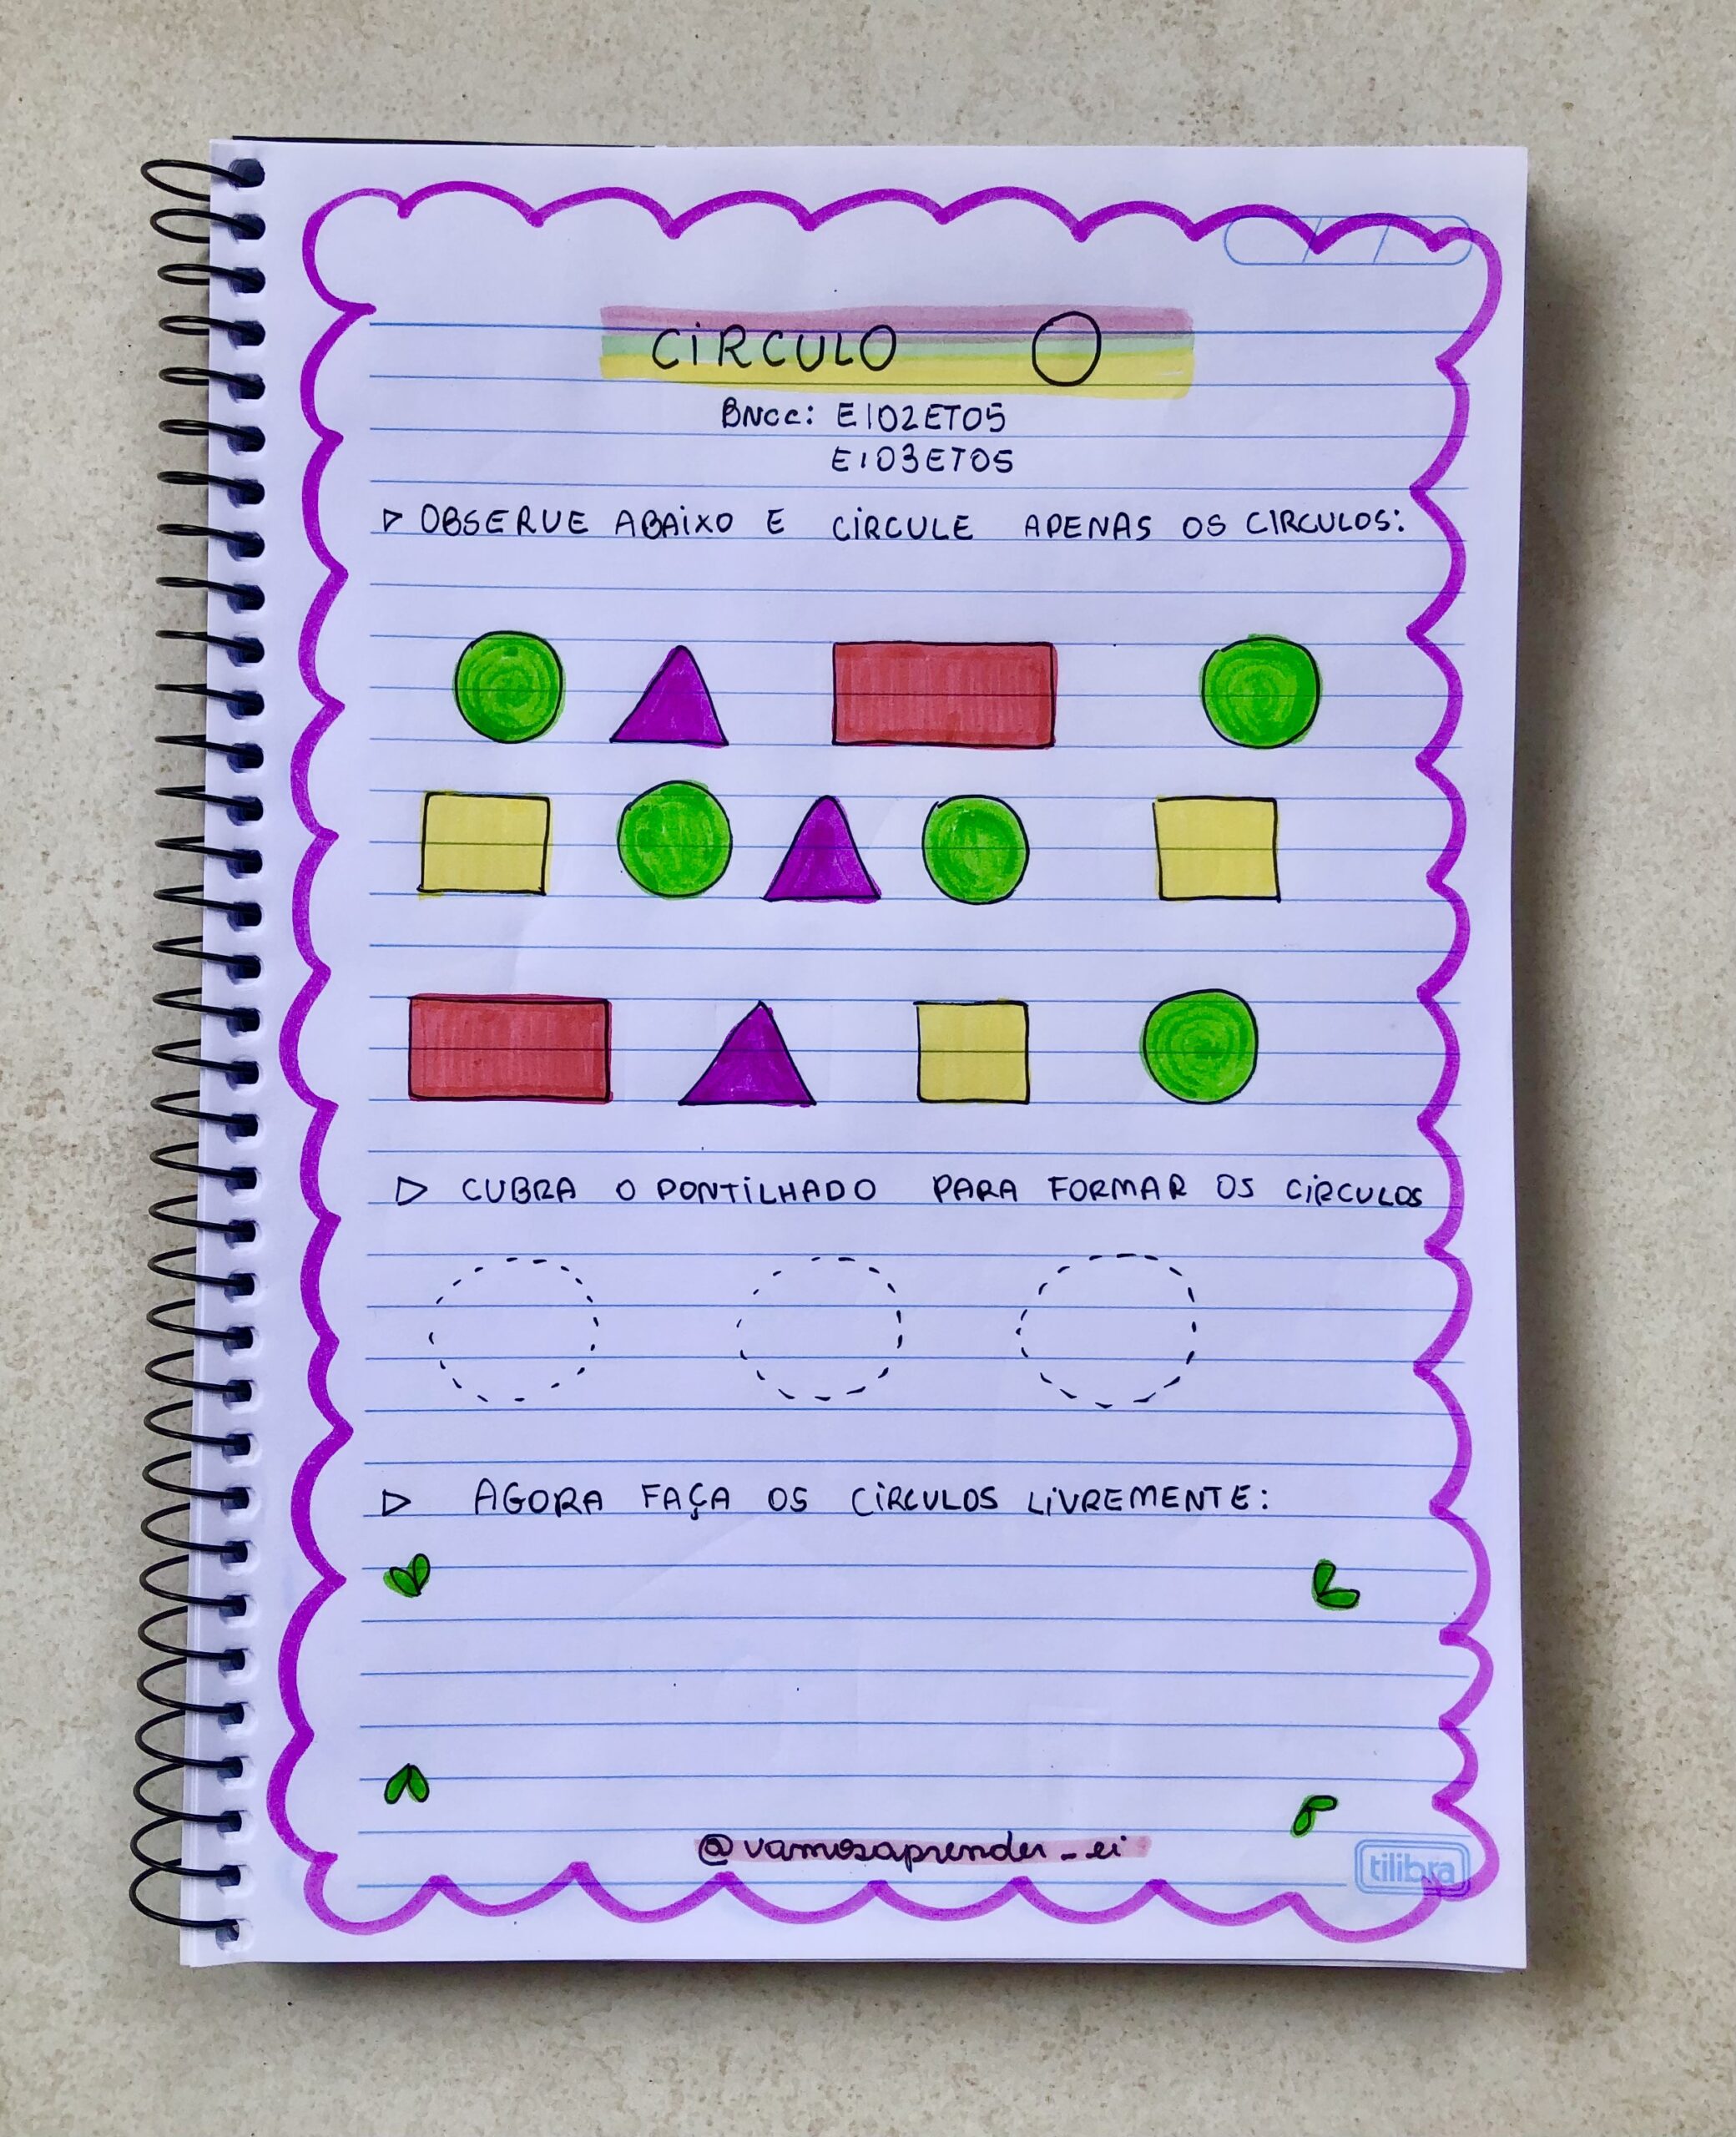 CÍRCULO
BNCC: EI02ET05
EI03ET05
OBSERVE ABAIXO E CÍRCULE APENAS OS CIRCULOS:
CUBRA O PONTILHADO PARA FORMAR OS CÍRCULOS
AGORA FAÇA OS CÍRCULOS LIVREMENTE:
@vamosaprender_ei
tilibra